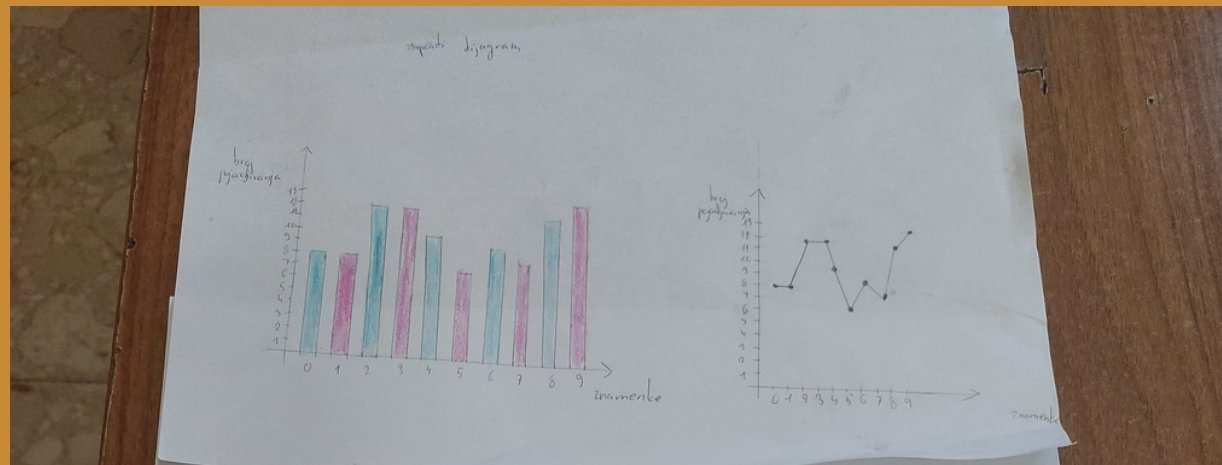 stupčasti dijagram
broj
pojavljivanja
13
12
11
10
9
8
7
6
5
4
3
2
1
0 1 2 3 4 5 6 7 8 9
znamenke
broj
pojavljivanja
13
12
11
10
9
8
7
6
5
4
3
2
1
0 1 2 3 4 5 6 7 8 9
znamenke